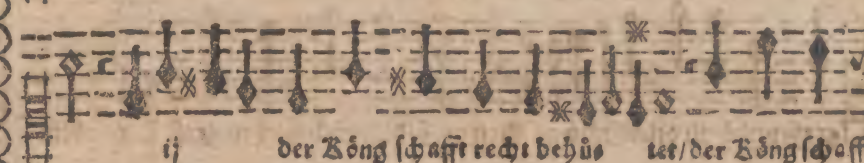 ij der Köng schafft recht behü- tet/ der Köng schaff